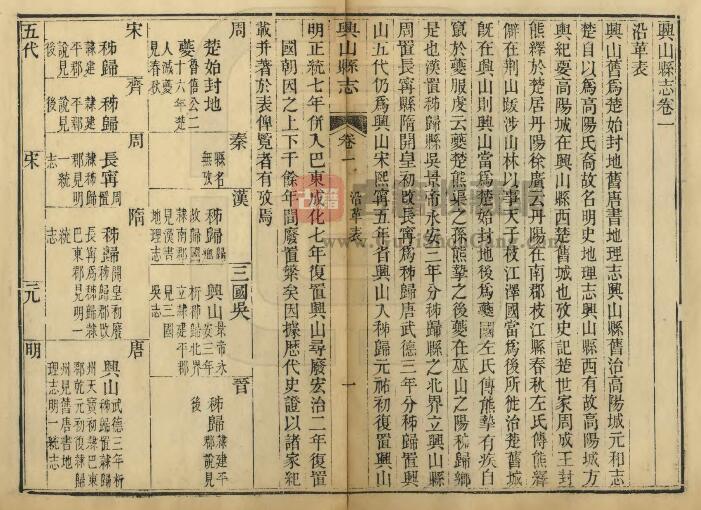 興山縣志卷一
沿革表
興山舊爲楚始封地舊唐書地理志興山縣舊治高陽城元和志
楚自以爲高陽氏裔故名明史地理志興山縣西有故高陽城方
輿紀要高陽城在興山縣西楚舊城也攷史記楚世家周成王封
熊繹於楚居丹陽徐廣云丹陽在南郡枝江縣春秋左氏傳熊繹
僻在荆山跋涉山林以事天子枝江澤國當爲後所徙治楚舊城
旣在興山則興山當爲楚始封地後爲夔國左氏傳熊摯有疾自
竄於夔服虔云夔楚熊渠之孫熊摯之後夔在巫山之陽秭歸鄉
是也漢置秭歸縣吳景帝永安三年分秭歸縣之北界立興山縣
周置長寗縣隋開皇初改長寗爲秭歸唐武德三年分秭歸置興
山五代仍爲興山宋熙寗五年省興山入秭歸元祐初復置興山
興山縣志
卷一
沿革表
一
明正統七年併入巴東成化七年復置興山尋廢宏治二年復置
國朝因之上下千餘年間廢置棼矣因據歷代史證以諸家紀
載并著於表俾覽者有攷焉
周
楚始封地
夔
魯僖公二
十六年楚
人滅夔
見春秋
秦
縣名
無攷
漢
秭歸
故歸國
隸南郡
見漢書
地理志
三國吳
興山
景帝永
安三年
析秭歸北界
立隸建平郡
見三國
吳志
晉
秭歸
隸建平
郡說見
後
宋
秭歸
隸建
平郡
說見
後
齊
秭歸
隸建
平郡
說見
後
周
長寗
周置
隸秭歸
郡見明
一統
志
隋
秭歸
開皇初廢
秭歸郡改
長寗爲秭歸隸
巴東郡見明一
統
志
唐
興山
武德三年析
秭歸置隸歸
州天寶初隸巴東
郡乾元初復隸歸
州見舊唐書地
理志明一統志
五代
宋
元
明